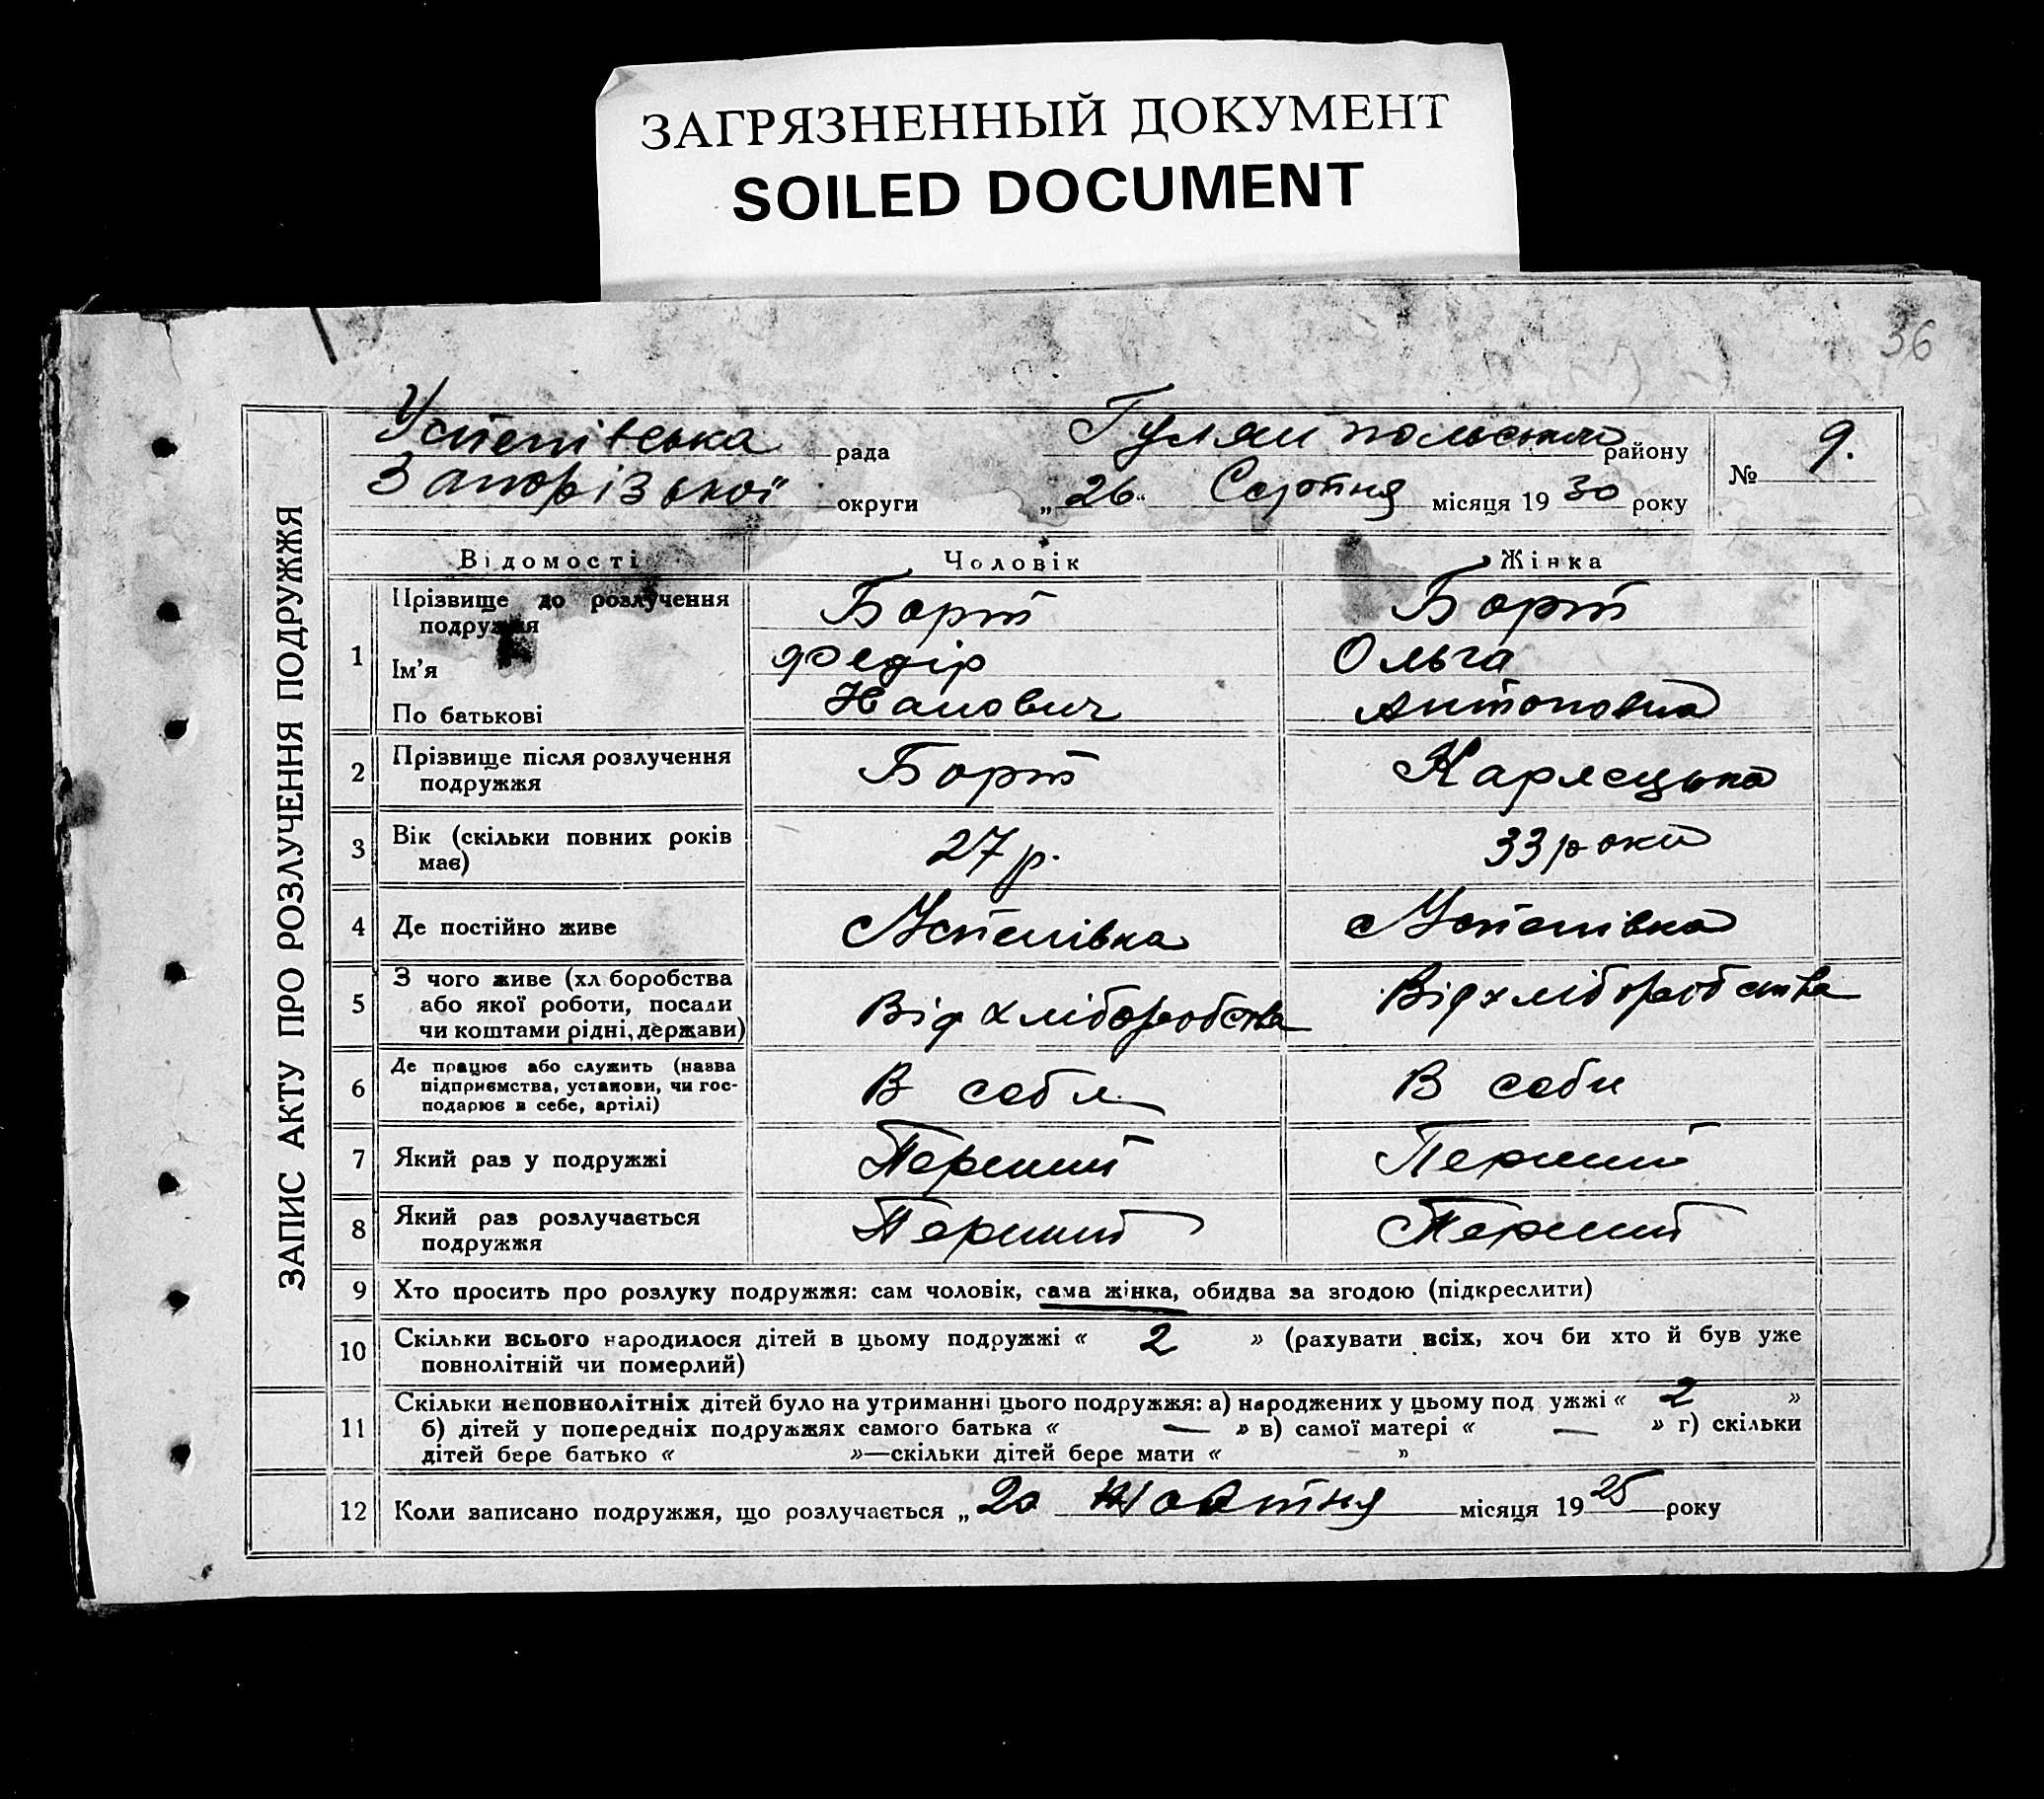 ЗАГРЯЗНЕННЫЙ ДОКУМЕНТ
SOILED DOCUMENT
36
ЗАПИС АКТУ ПРО РОЗЛУЧЕННЯ ПОДРУЖЖЯ
Успенівська рада Гуляйпольського району № 9.
Запорізької округи „26“ Серпня місяця 1930 року
Відомості Чоловік Жінка
1 Прізвище до розлучення подружжя Борт Борт
Ім'я Федір Ольга
По батькові Антоновна
2 Прізвище після розлучення подружжя Борт
3 Вік (скільки повних років має) 27 р. 33 роки
4 Де постійно живе с Успенівка с Успенівка
5 З чого живе (хл боробства або якої роботи, посади чи коштами рідні, держави) Від хліборобства Від хліборобства
6 Де працює або служить (назва підприємства, установи, чи господарює в себе, артілі) В себя В себи
7 Який раз у подружжі Перший Перший
8 Який раз розлучається подружжя Перший Перший
9 Хто просить про розлуку подружжя: сам чоловік, сама жінка, обидва за згодою (підкреслити)
10 Скільки всього народилося дітей в цьому подружжі « 2 » (рахувати всіх, хоч би хто й був уже
повнолітній чи померлий)
11 Скільки неповнолітніх дітей було на утриманні цього подружжя: а) народжених у цьому под ужжі « 2 »
б) дітей у попередніх подружжях самого батька « — » в) самої матері « — » г) скільки
дітей бере батько « »—скільки дітей бере мати « »
12 Коли записано подружжя, що розлучається „ 20 Жовтня місяця 1925 року